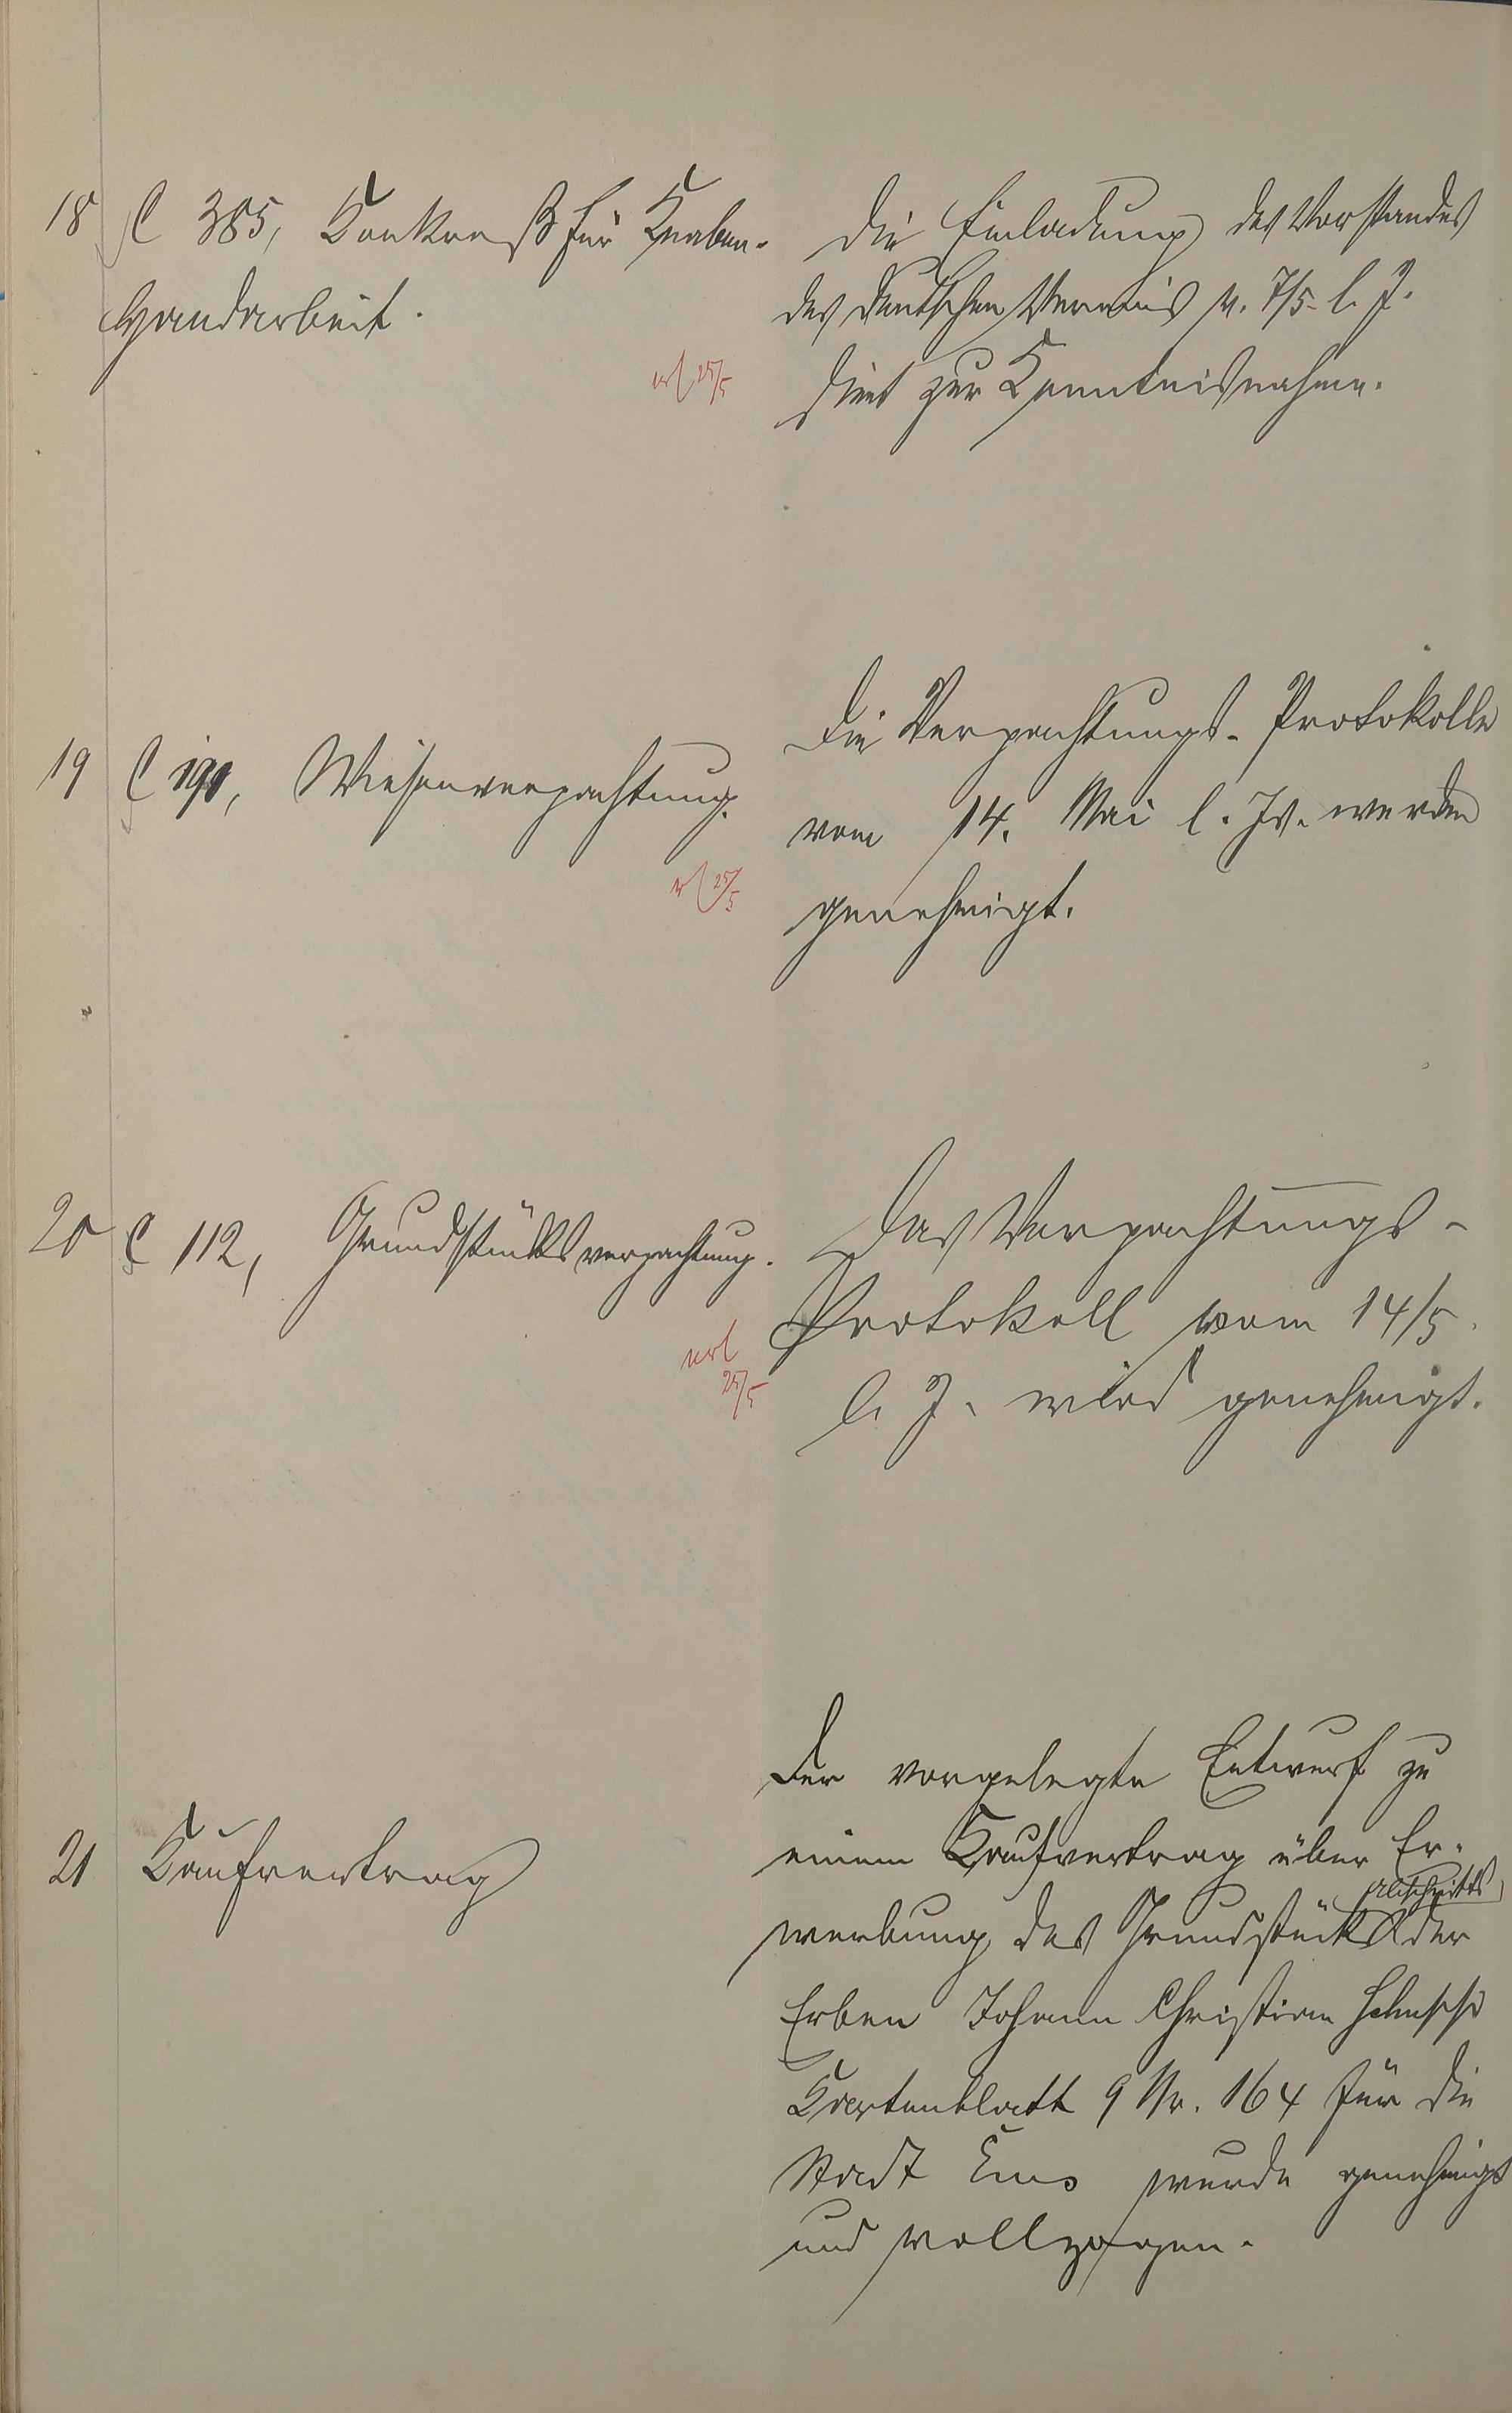 18 C 385, Konkreß für Knaben-
Handarbeit.
erl 25/5
Die Einladung des Vorstandes
des deutschen Vereins v. 7/5. l. J.
dient zur Kenntnisnahme.
19 C 191, Wiesenverpachtung.
erl 25/5
Die Verpachtungs-Protokolle
vom 14. Mai l. Js. werden
genehmigt.
20 C 112, Grundstücksverpachtung.
erl
25/5
Das Verpachtungs-
Protokoll vom 14/5.
l. J. wird genehmigt.
21 Kaufvertrag
Der vorgelegte Entwurf zu
einem Kaufvertrag über Er-
werbung des Grundstücks Abschnitts der
Erben Johann Christian
Kartenblatt 9 Nr. 164 für die
Stadt Ems wurde genehmigt
und vollzogen.